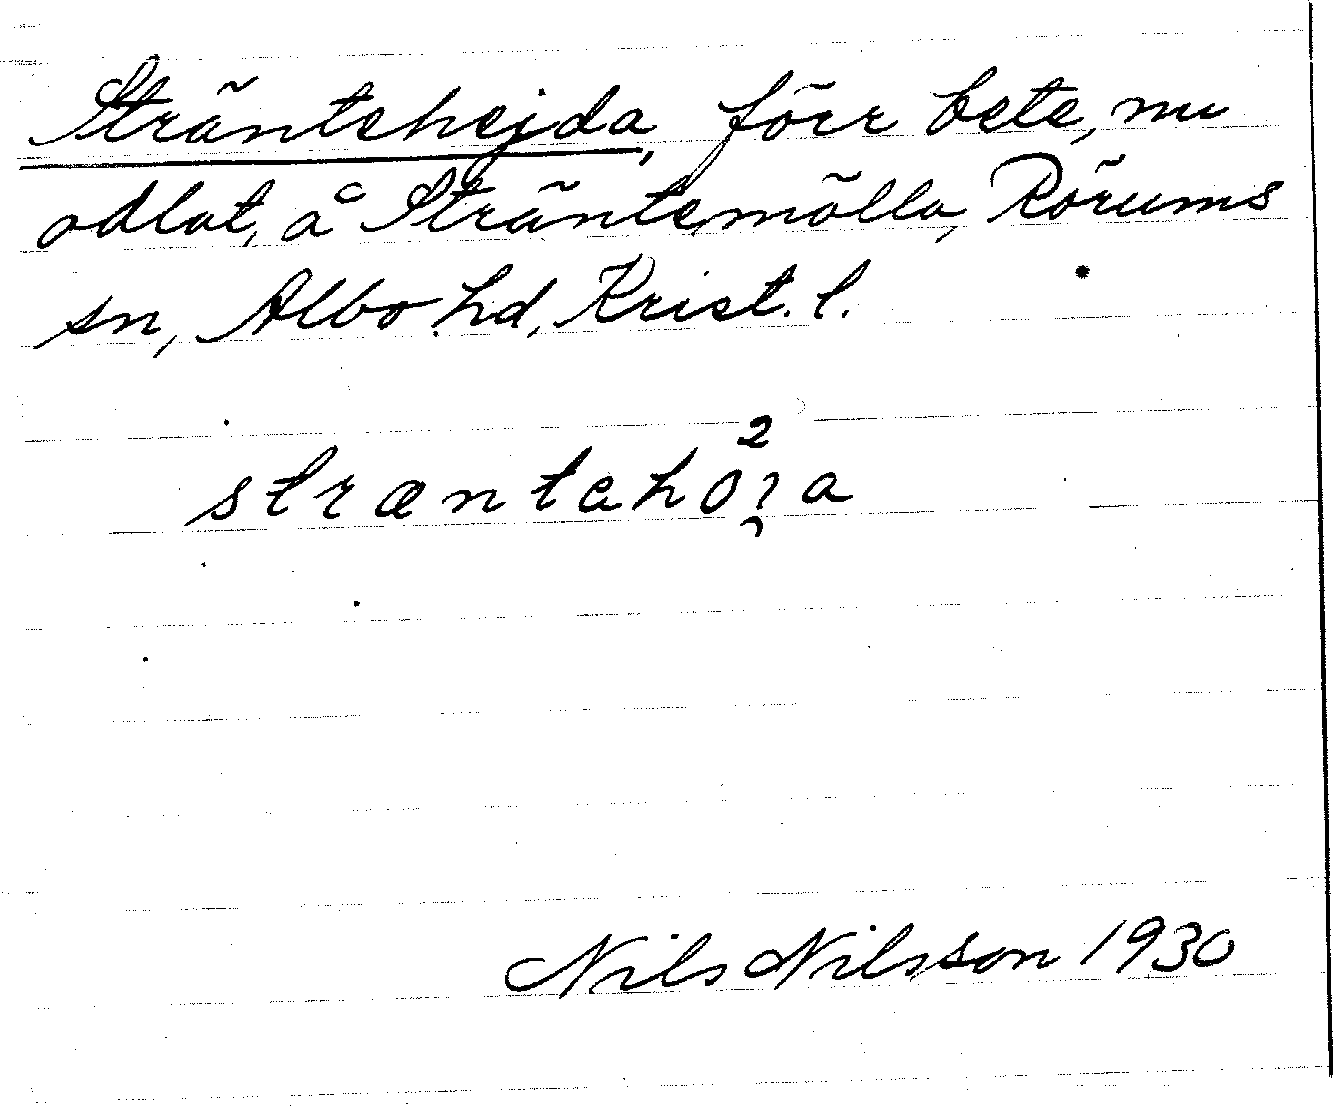 Sträntehejda, förr bete, nu
odlat, å Sträntemölla, Rörums
sn, Albo hd, Krist. l.
stræntahoꝛ̨²a
Nils Nilsson 1930